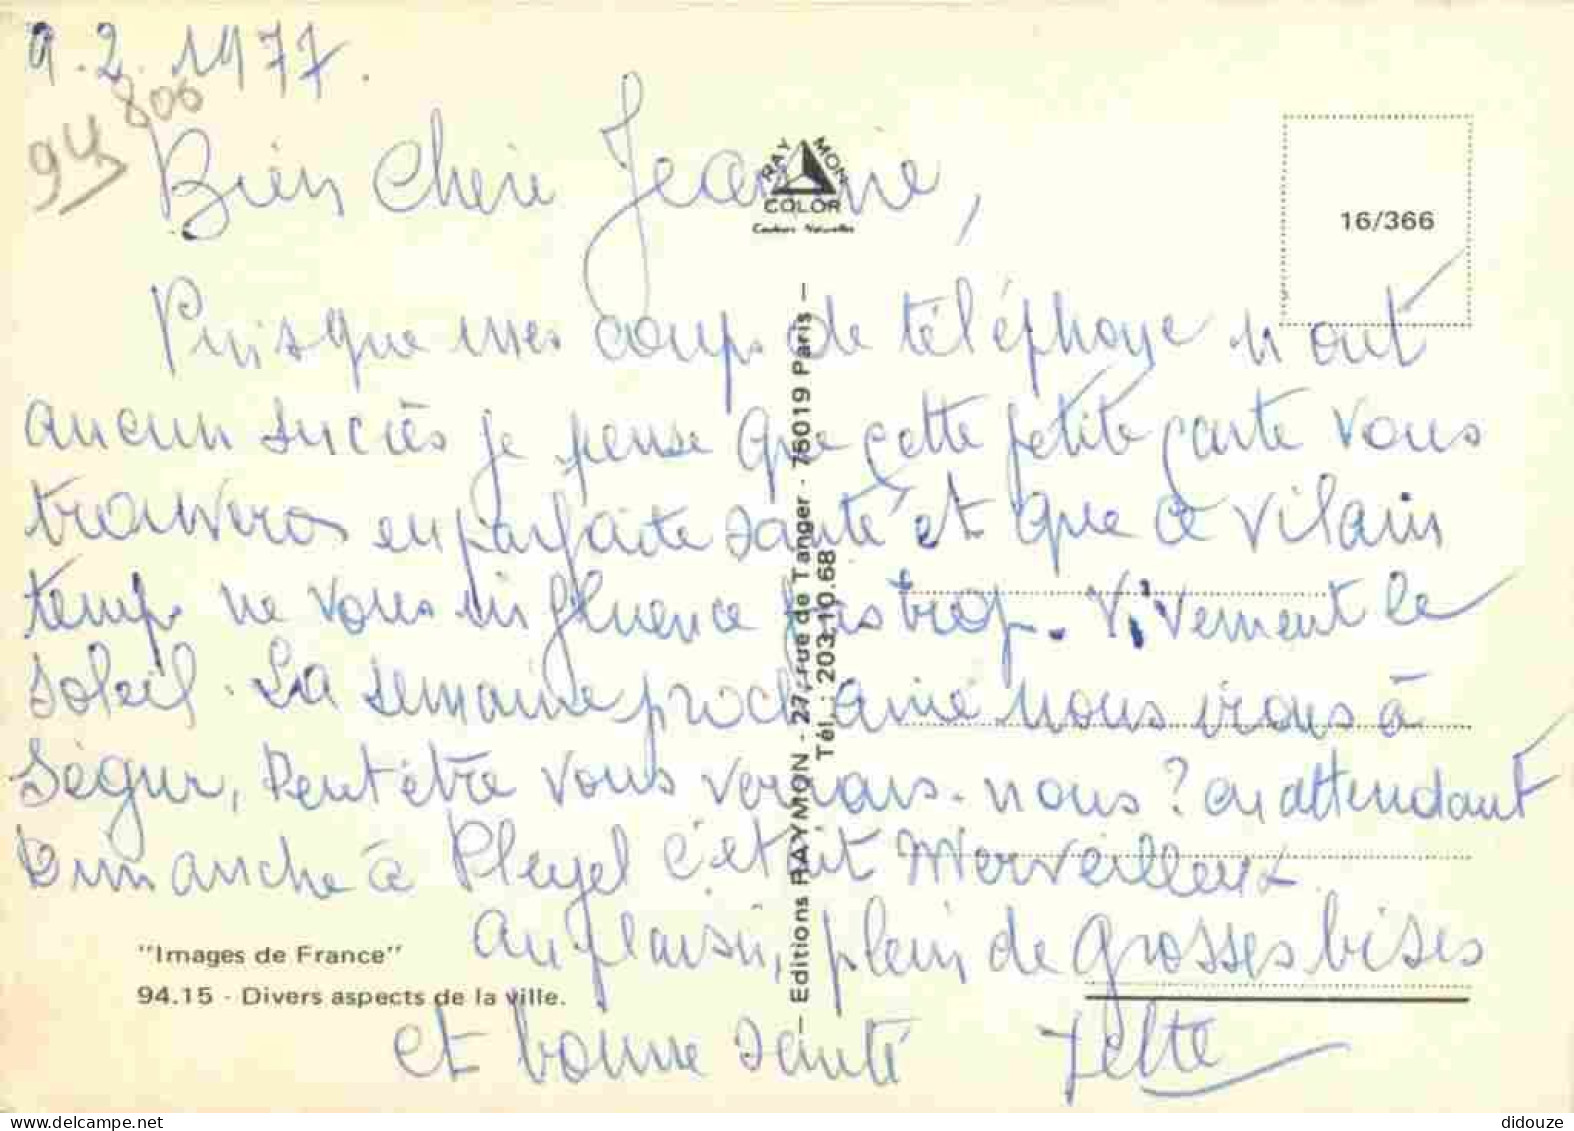 9.2.1977.
94 806
Bien Chere Jeannine,
RAYMON
COLOR
Couleurs Naturelles
16/366
Puisque mes coups de téléphone n'ont
aucun succès je pense que cette petite carte vous
trouvera en parfaite santé et que ce vilain
temps ne vous influence pas trop. Vivement le
soleil. La semaine prochaine nous irons à
Ségur, Peut être vous verrais-nous? en attendant
Dimanche à Pleyel c'etait Merveilleux
au plaisir, plein de grosses bises
et bonne santé
— Editions RAYMON - 27, rue de Tanger - 75019 Paris —
Tél. : 203.10.68
"Images de France"
94.15 - Divers aspects de la ville.
didouze